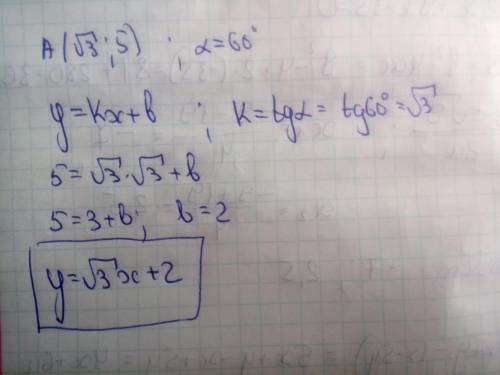 A(√3; 5) ; α=60°
y=kx+b ; k=tgα=tg60°=√3
5=√3·√3+b
5=3+b; b=2
y=√3x+2